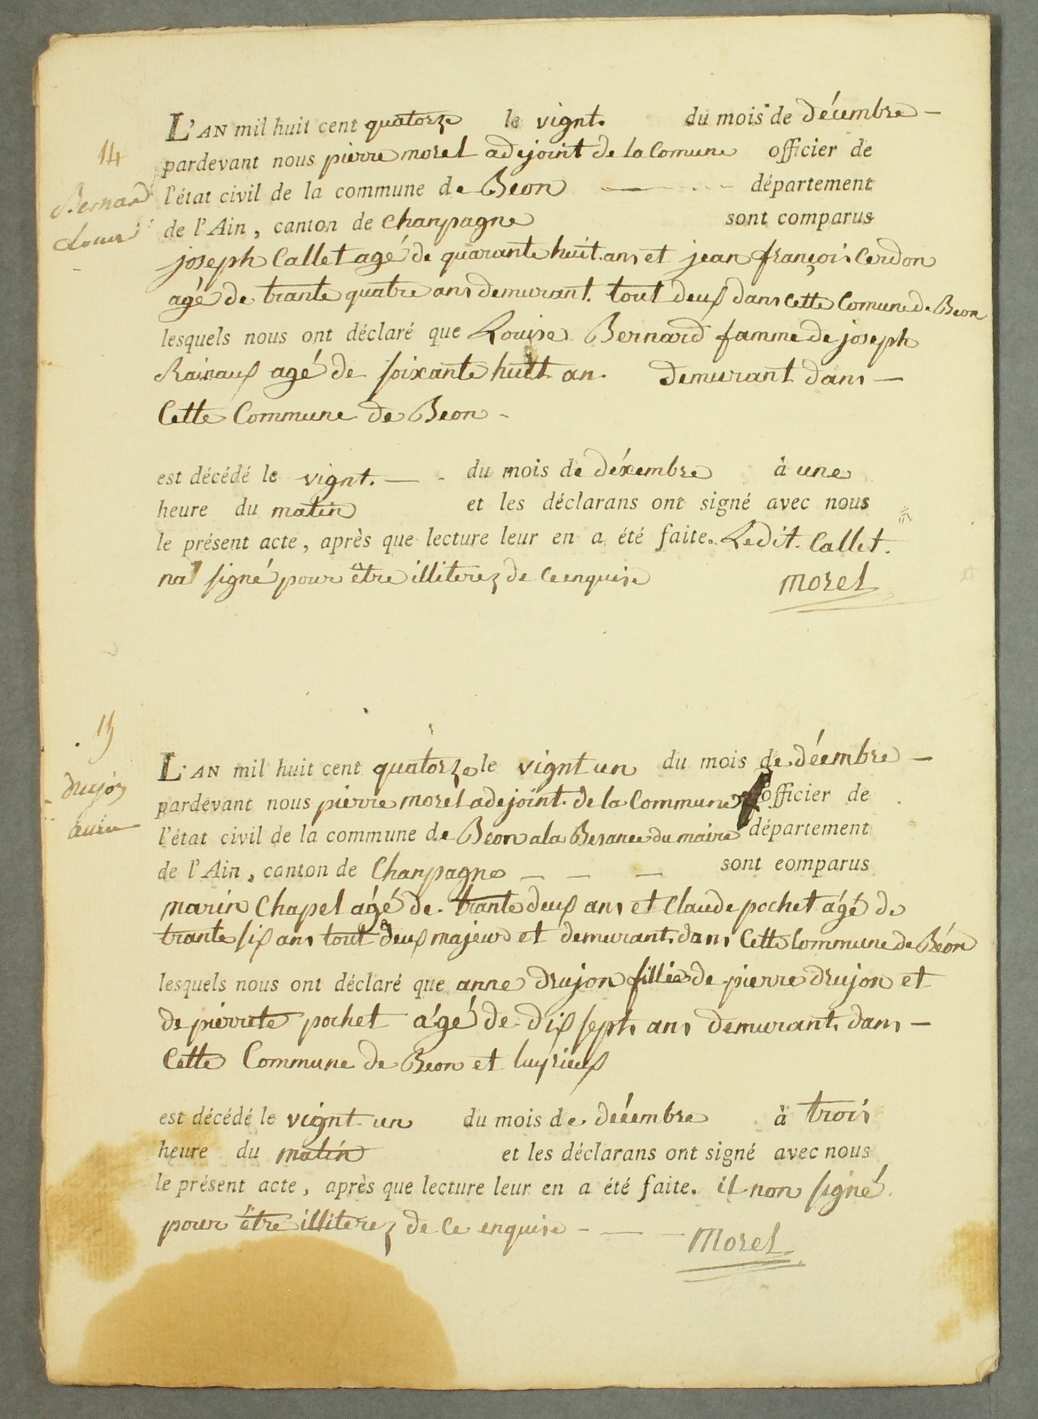 14
Bernard
Louise
L'AN mil huit cent quatorze le vignt. du mois de décembre —
pardevant nous pierre morel adejoint de la Comune officier de
l'état civil de la commune de Beon — département
de l'Ain, canton de Chanpagne sont comparus
joseph Callet agé de quarante huit ans et jean françois Cerdon
agé de trante quatre ans demurant tout deux dans Cette Comune de Beon
lesquels nous ont déclaré que Louise Bernard famme de joseph
agé de soixante huit an. demurant dans —
Cette Commune de Beon -
est décédé le vignt. — - du mois de déxembre à une
heure du matin et les déclarans ont signé avec nous
le présent acte, après que lecture leur en a été faite. Ledit. Callet.
na signé pour être illiterez de ce enquise
morel
15
drujon
L'AN mil huit cent quatorze le vignt un du mois de déembre —
pardevant nous pierre morel adejoint de la Commune officier de
l'état civil de la commune de Beon a la Besance du maire département
de l'Ain, canton de Chanpagne — — — sont comparus
marin Chapel agé de trante deux ans et Claude pochet agé de
trante six ans tout deux majeur et demurant dans Cette Commune de Béon
lesquels nous ont déclaré que anne drujon fillie de pierre drujon et
de pierrete pochet agé de dix sept ans demurant dans —
Cette Commune de Beon et luyrieux
est décédé le vignt un du mois de deéembre à trois
heure du matin et les déclarans ont signé avec nous
le présent acte, après que lecture leur en a été faite. il non signé
pour être illiterez de ce enquise - — -
Morel